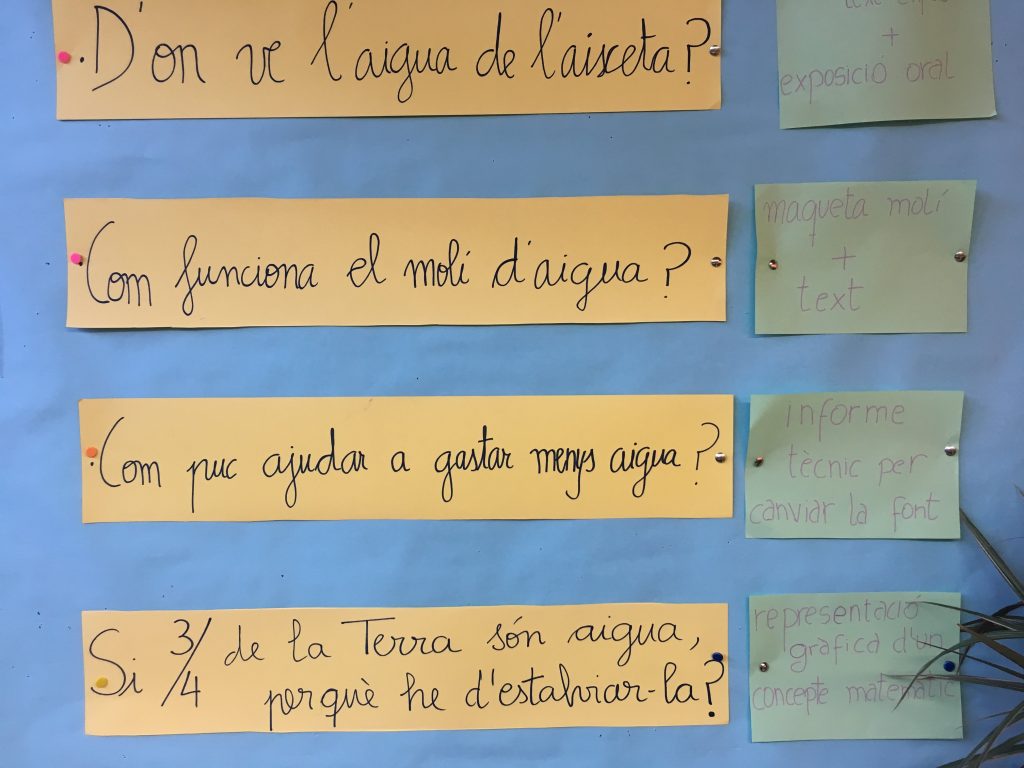 D'on ve l'aigua de l'aixeta?
text
+
exposició oral
Com funciona el molí d'aigua?
maqueta molí
+
text
Com puc ajudar a gastar menys aigua?
informe
tècnic per
canviar la font
Si 3/4 de la Terra són aigua,
perquè he d'estalviar-la?
representació
gràfica d'un
concepte matemàtic